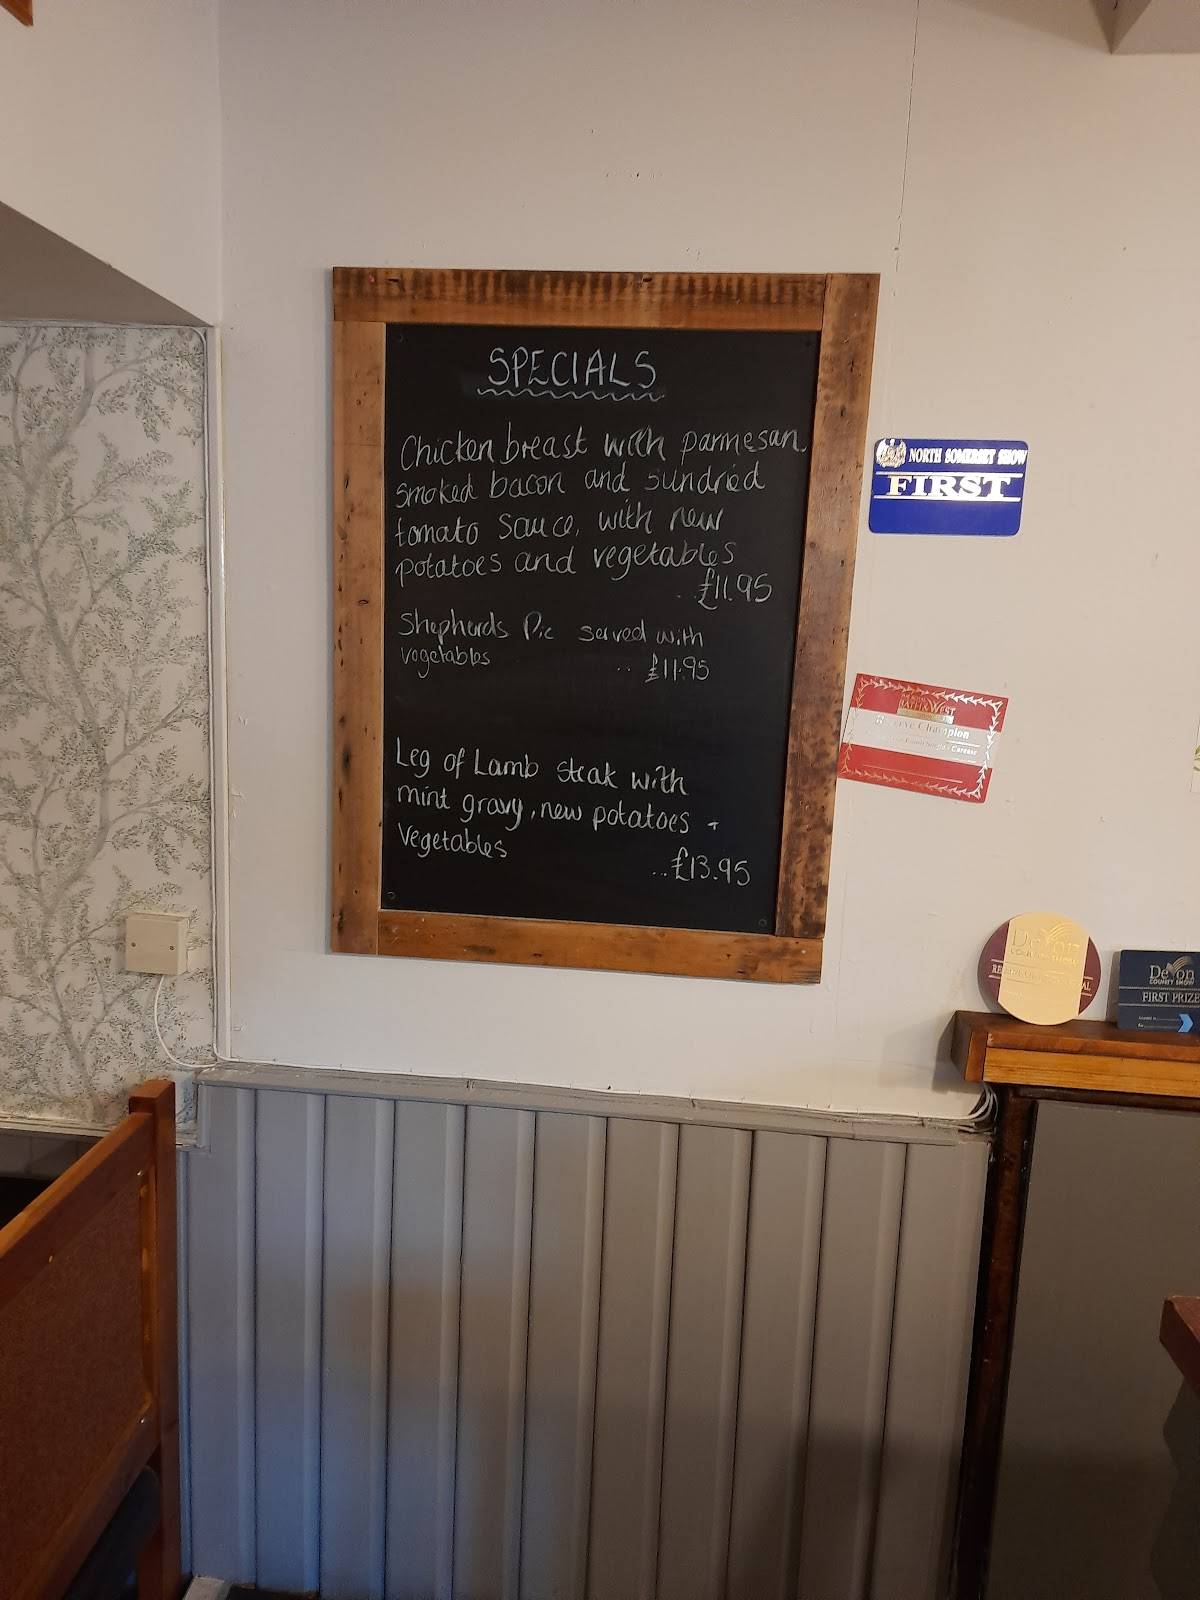 SPECIALS
Chicken breast with parmesan,
smoked bacon and sundried
tomato sauce, with new
potatoes and vegetables
..£11.95
Shepherds Pie served with
vegetables .. £11.95
Leg of Lamb steak with
mint gravy, new potatoes +
vegetables
...£13.95
NORTH SOMERSET SHOW
FIRST
BATH & WEST
Reserve Champion
Devon
COUNTY SHOW
Devon
COUNTY SHOW
FIRST PRIZE